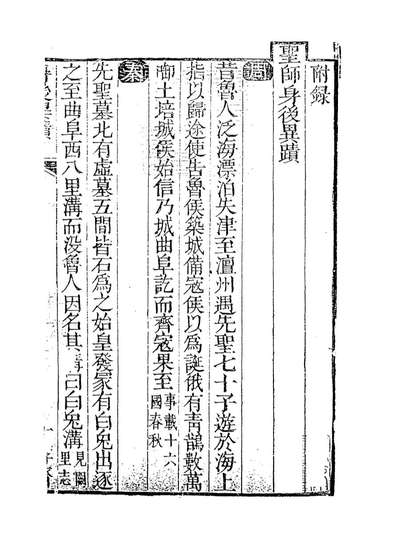 附録
聖師身後異蹟
周
昔魯人泛海漂泊失津至澶州遇先聖七十子遊於海上
指以歸途使告魯侯築城備寇侯以為誕俄有青鵲數萬
御土培城侯始信乃城曲阜訖而齊寇果至事載十六國春秋
秦
先聖墓北有虛墓五間皆石為之始皇發冢有白兔出逐
之至曲阜西八里溝而没魯人因名其溝曰白兔溝見闕里志